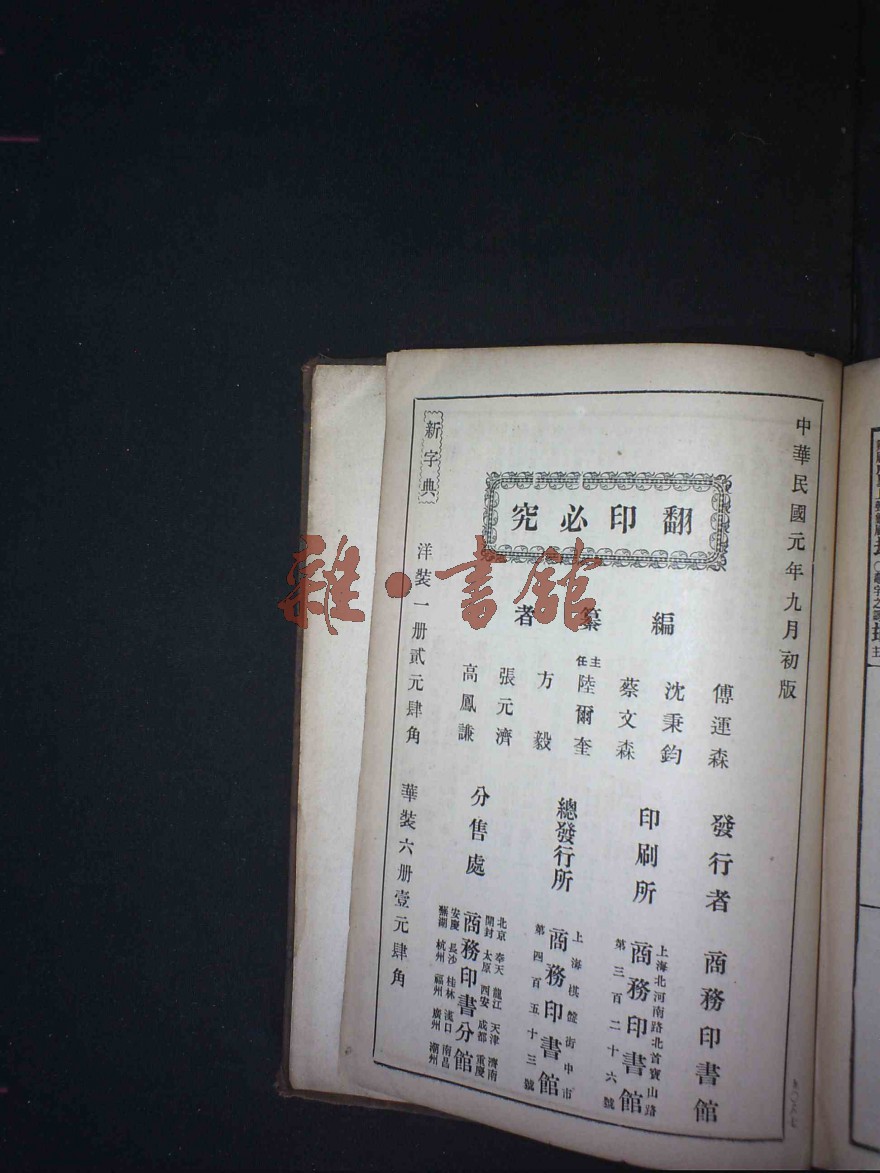 中華民國元年九月初版
翻印必究
編纂者
傅運森
沈秉鈞
蔡文森
主任
陸爾奎
方毅
張元濟
高鳳謙
發行者 商務印書館
印刷所
上海北河南路北首寶山路
商務印書館
第三百二十六號
總發行所
上海棋盤街中市
商務印書館
第四百五十三號
分售處
北京 奉天 龍江 天津 濟南
開封 太原 西安 成都 重慶
商務印書分館
安慶 長沙 桂林 漢口 南昌
蕪湖 杭州 福州 廣州 潮州
新字典
洋裝一册貳元肆角 華裝六册壹元肆角
雜·書館